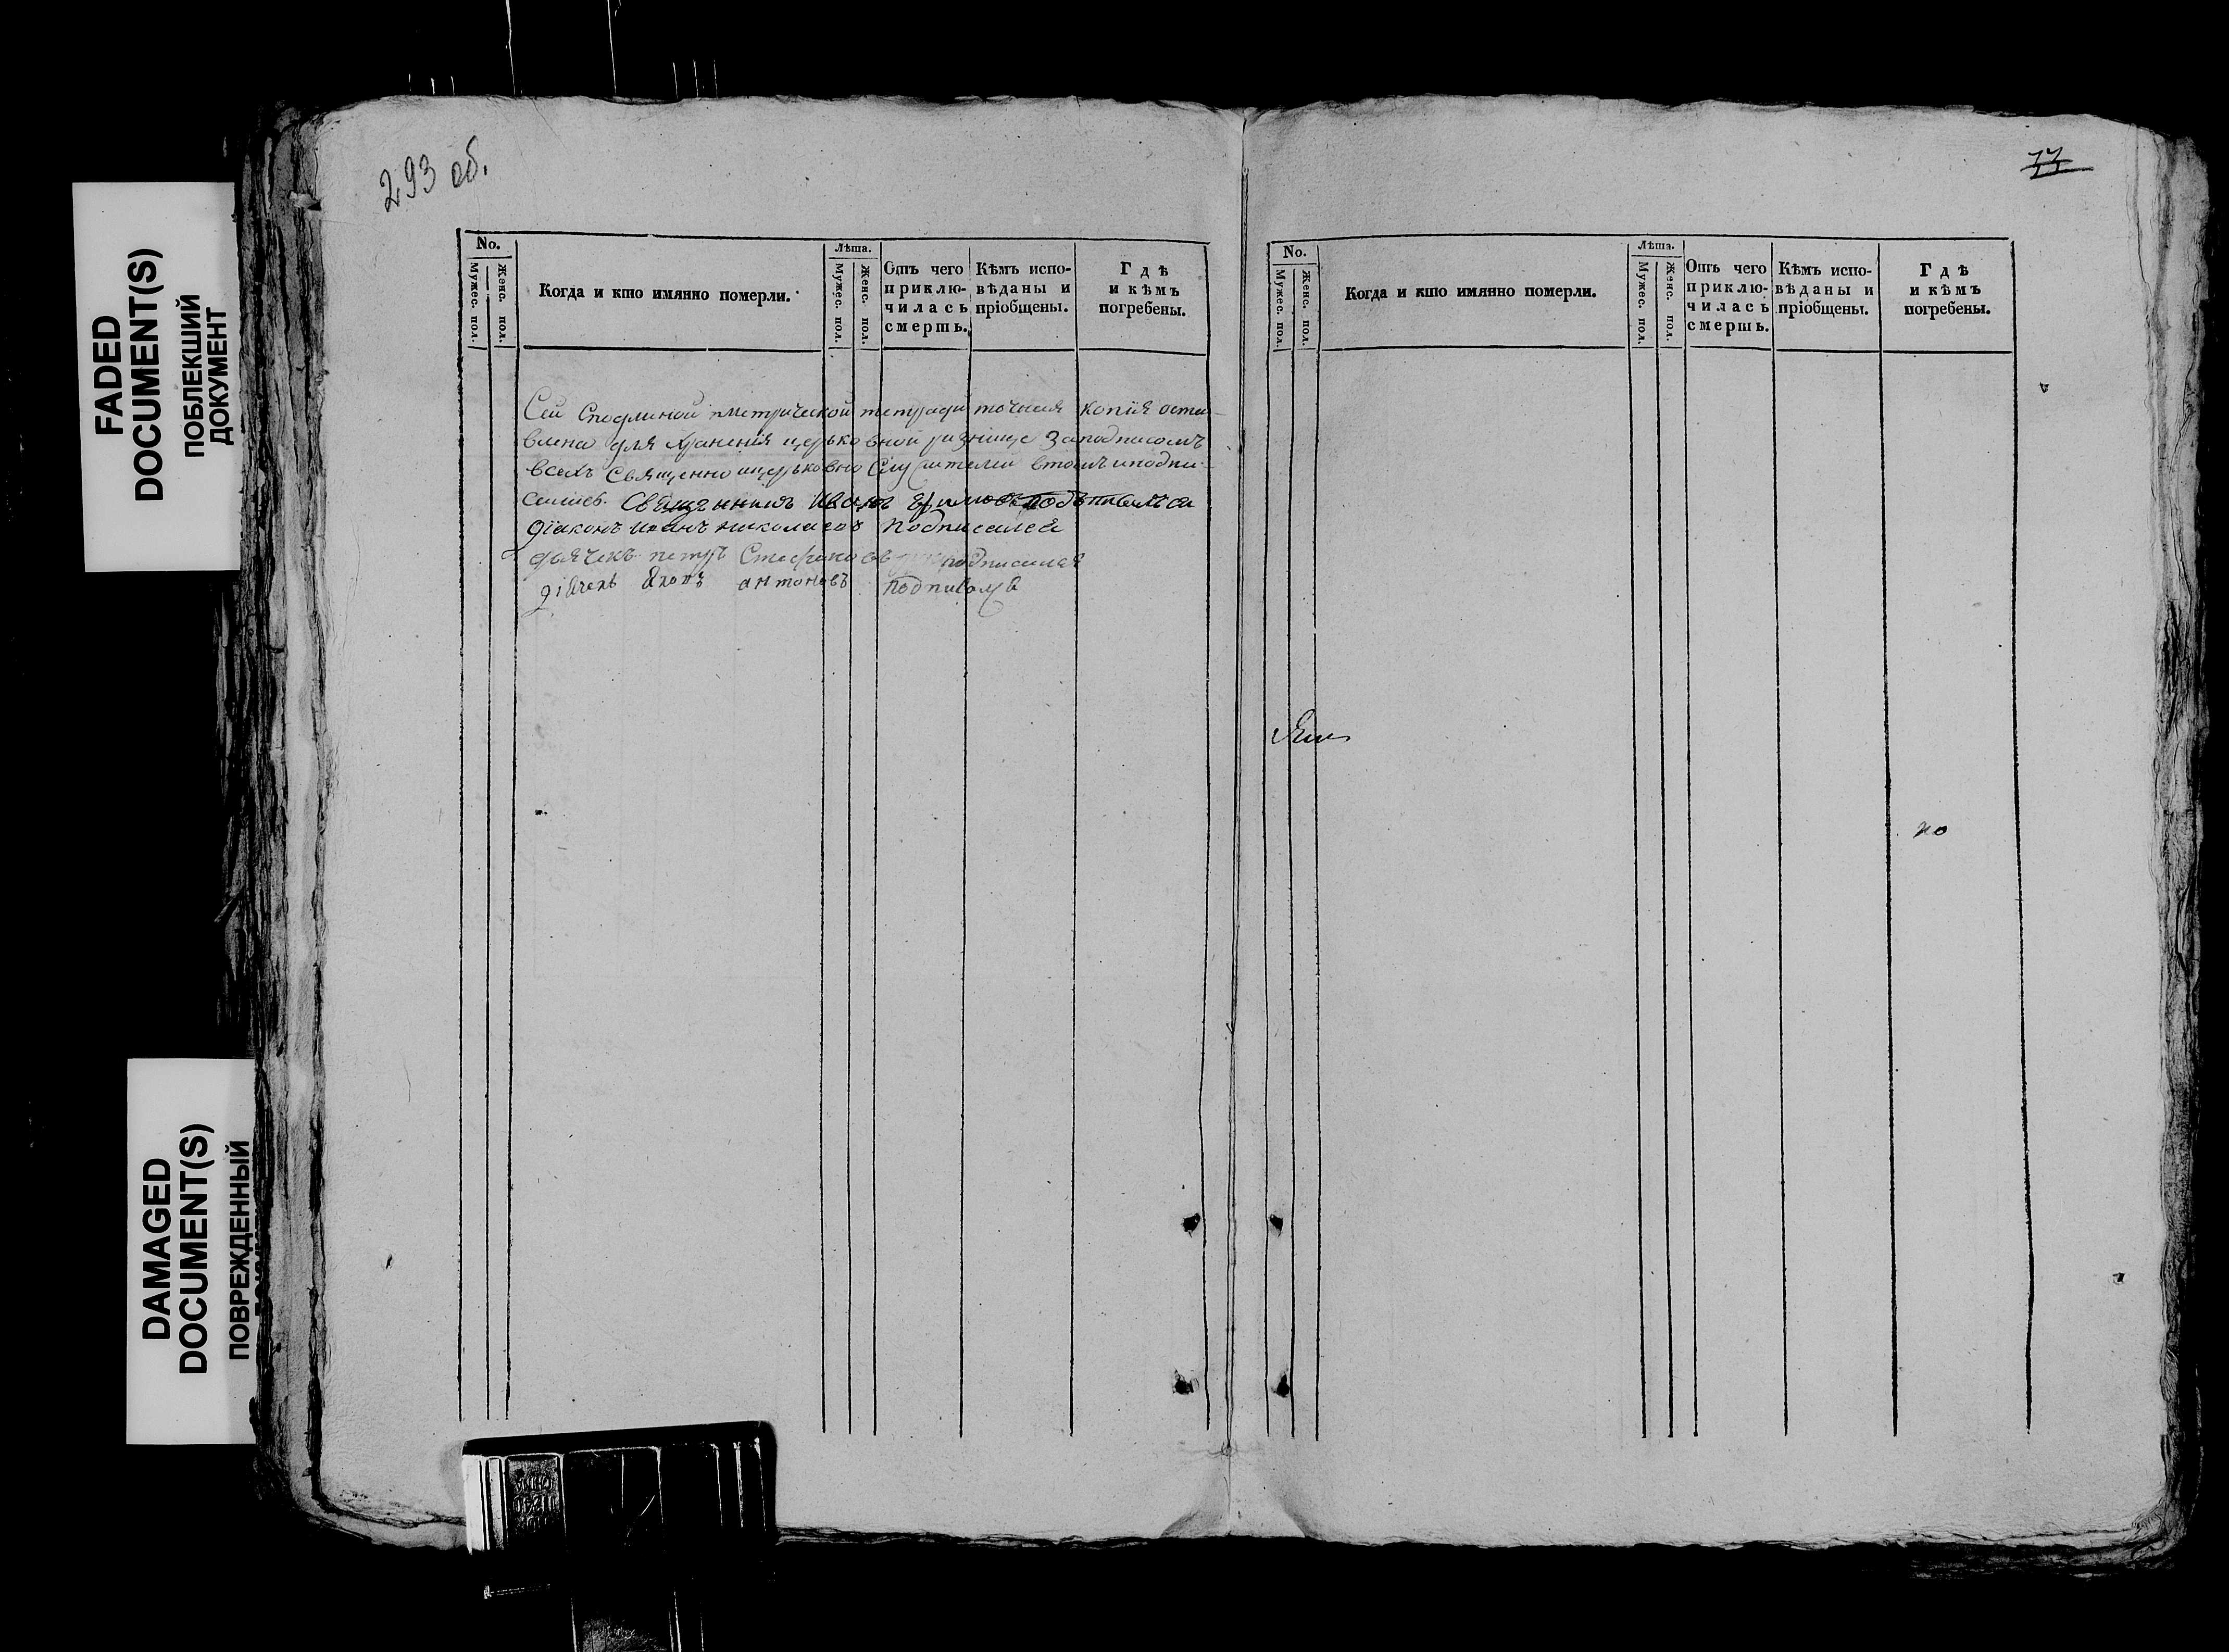 FADED
DOCUMENT(S)
ПОБЛЕКШИЙ
ДОКУМЕНТ
DAMAGED
DOCUMENT(S)
ПОВРЕЖДЕННЫЙ
293 об.
No.
Мужес. пол.
Женс. пол.
Когда и кто имянно померли.
Лѣта.
Мужес. пол.
Женс. пол.
Отъ чего
приклю-
чилась
смерть.
Кѣмъ испо-
вѣданы и
пріобщены.
Гдѣ
и кѣмъ
погребены.
Сей Сподлиной метрической тетради точная копія оста-
влена для храненія церьковной ризнице Заподписомъ
всехъ Священно ицерьковно Служителей втомъ иподпи-
сались. Священникъ Иванъ подписался
діаконъ Иванъ николаевъ Подписался
дьячекъ петръ Стефановъ подписался
дiячекъ антоновъ подписался
77
No.
Мужес. пол.
Женс. пол.
Когда и кто имянно померли.
Лѣта.
Мужес. пол.
Женс. пол.
Отъ чего
приклю-
чилась
смерть.
Кѣмъ испо-
вѣданы и
пріобщены.
Гдѣ
и кѣмъ
погребены.
по